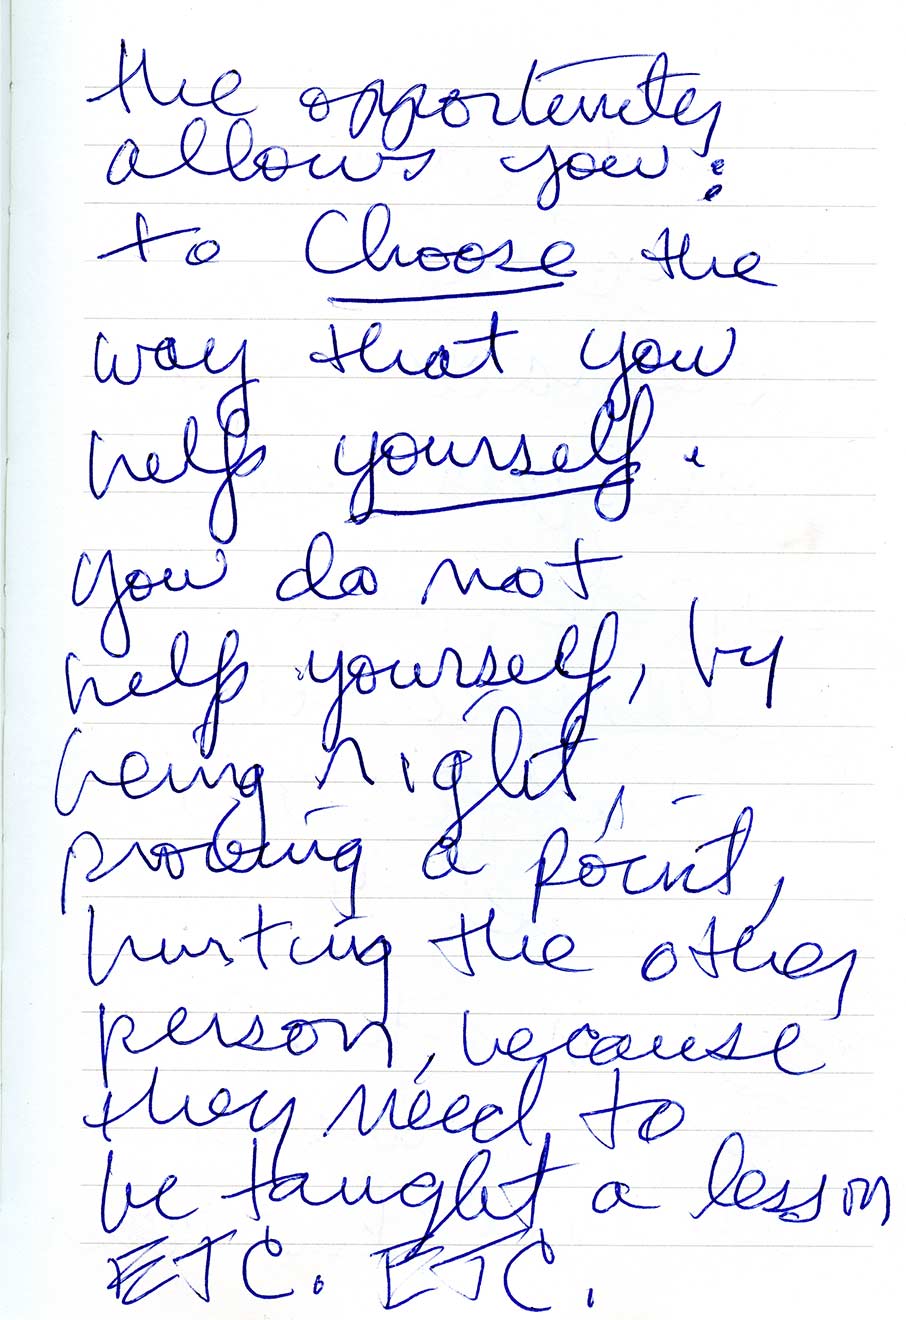 the opportunity
allows you:
to Choose the
way that you
help yourself.
you do not
help yourself, by
being right,
proving a point,
hurting the other
person, because
they need to
be taught a lesson
ETC. ETC.